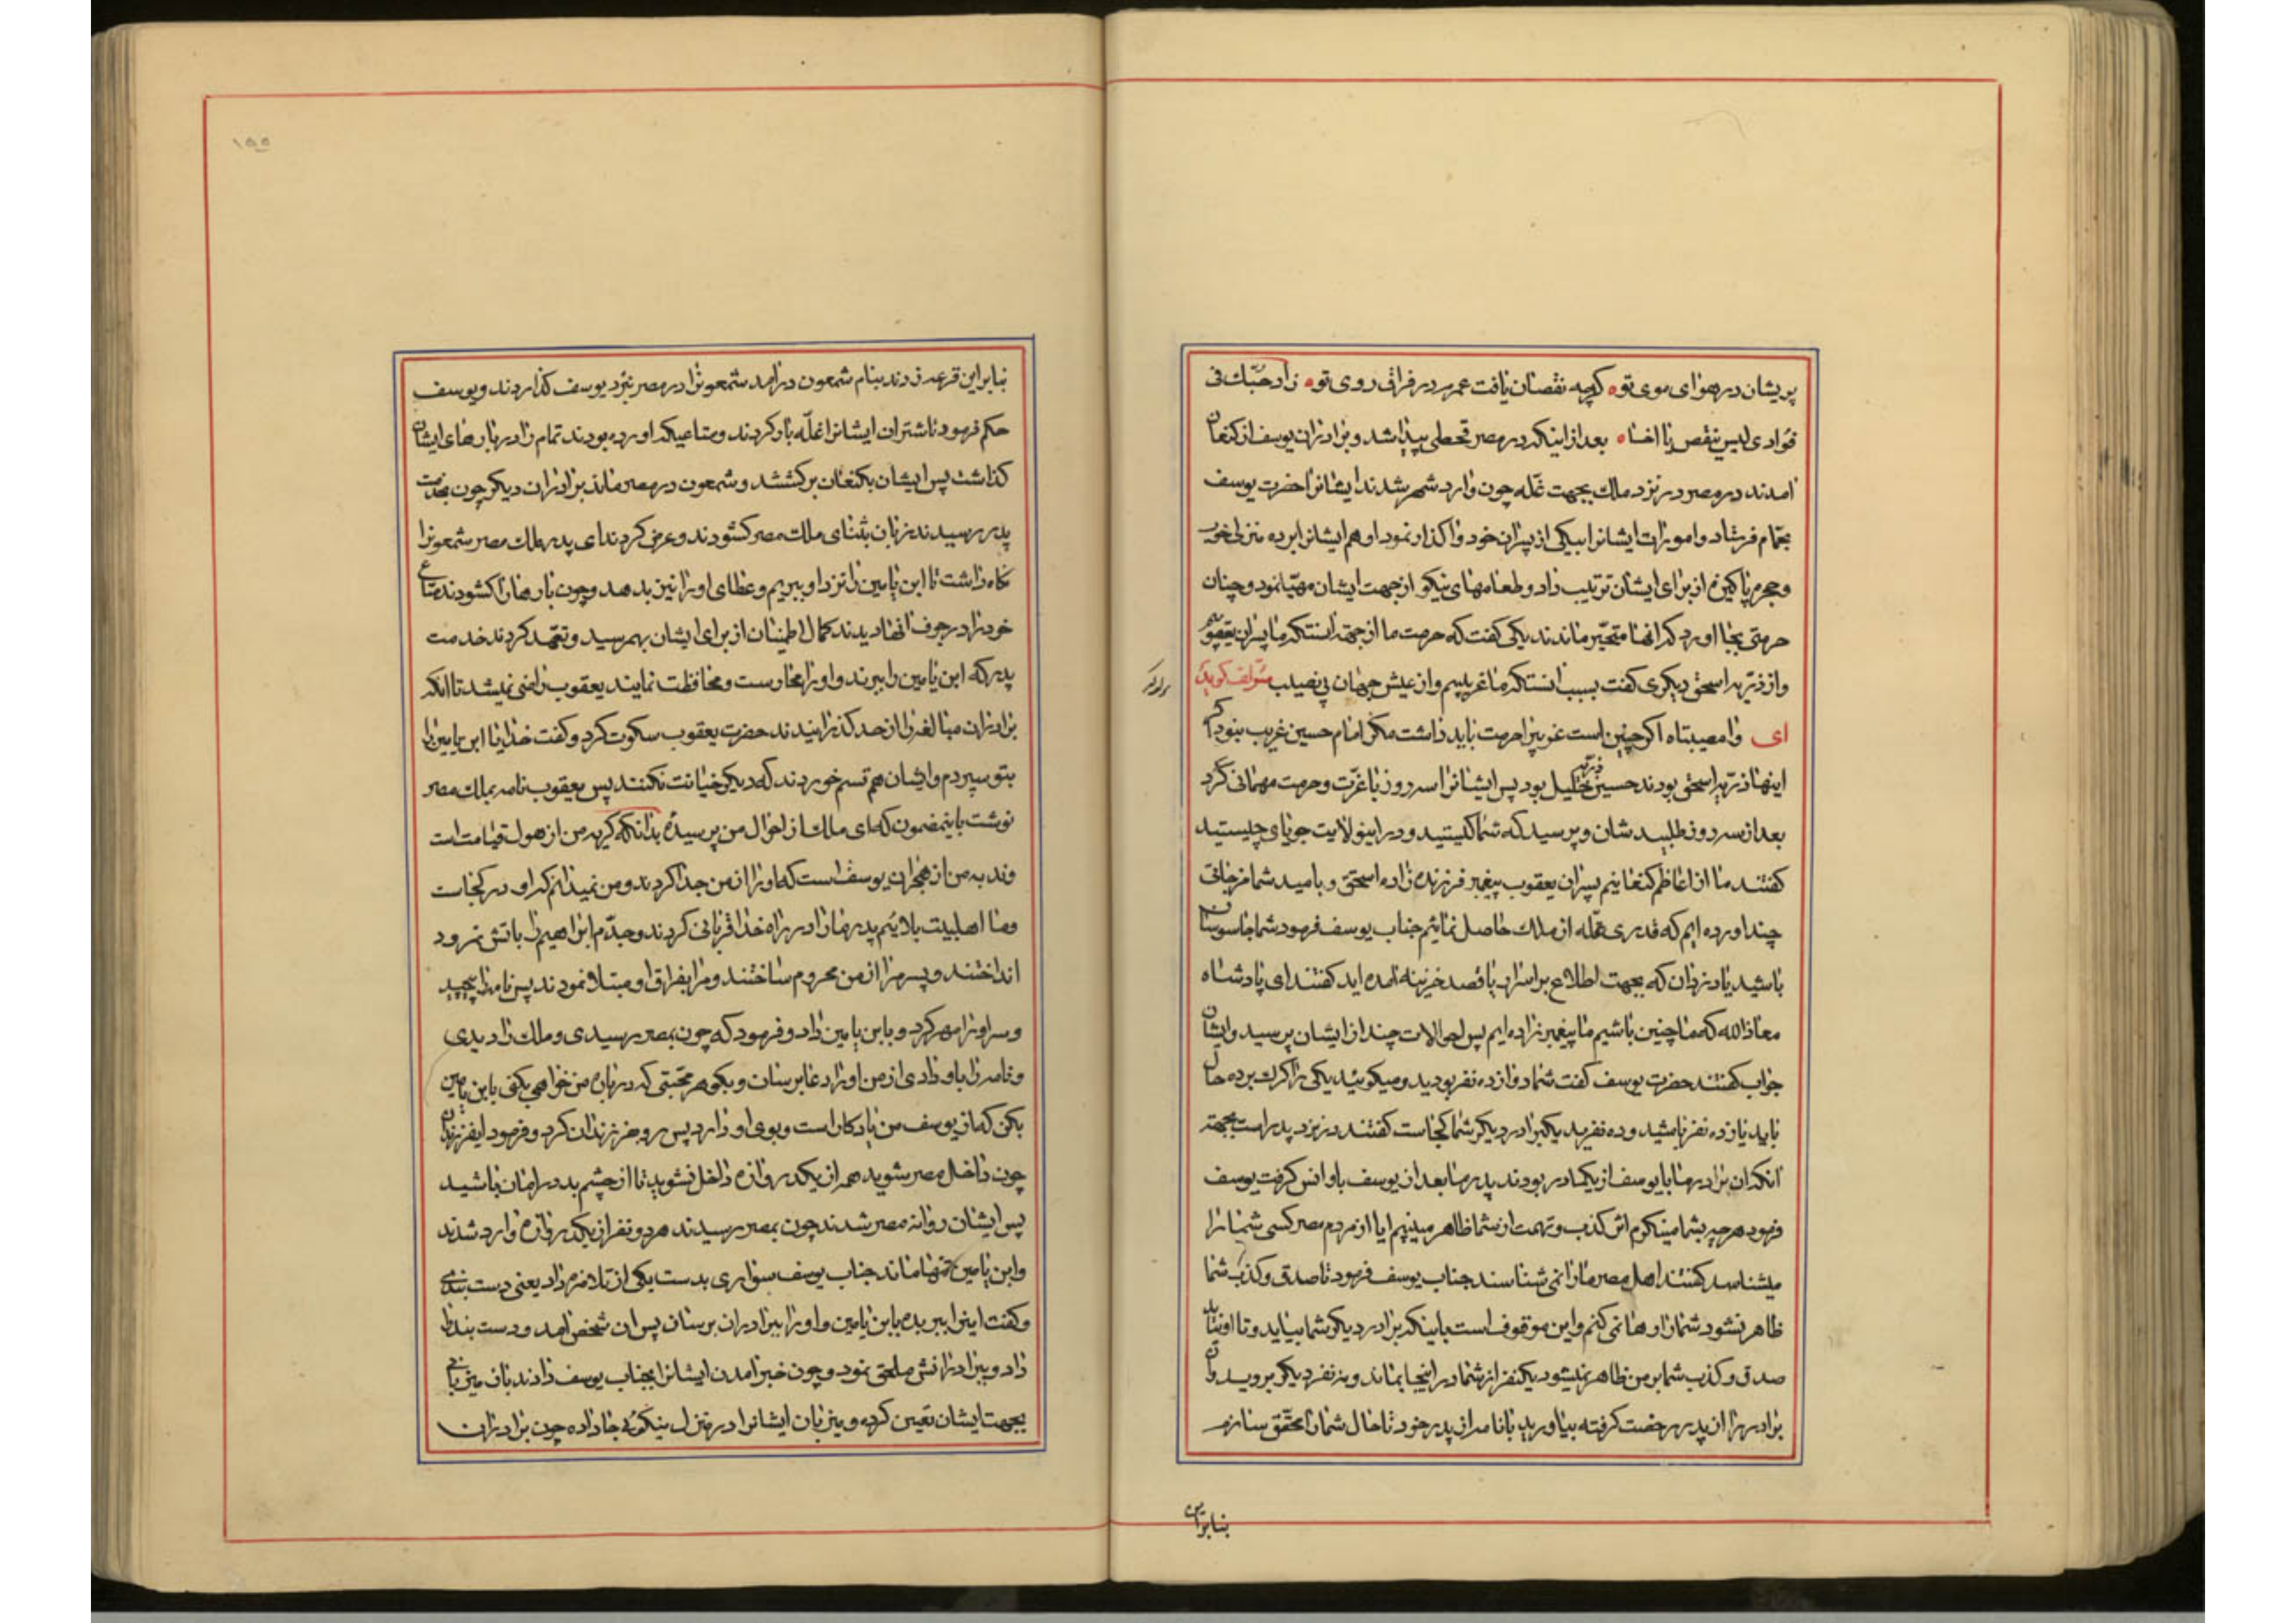 پریشان در هوای موی تو ه کرچه نقصان یافت عمرم در فراق روی تو ه زاد حبّک فی
فؤادی لیس ینقص یا اخاه ه بعد از اینکه در مصر قحطی پیدا شد و برادران یوسف از کنعان
امدند در مصر در نزد ملک بجهت غلّه چون وارد شهر شدند ایشانرا حضرت یوسف
بحمّام فرستاد و امورات ایشانرا بیکی از پسران خود واکذار نمود او هم ایشانرا برده منزلی خوب
و حجره پاکیزه از برای ایشان ترتیب داد و طعامهای نیکو از جهت ایشان مهیّا نمود و چنان
حرمتی بجا اورد که انها متحیّر ماندند یکی کفت که حرمت ما از جهة اینستکه ما پسران یعقوبیم
و از ذریه اسحق دیکری کفت بسبب انستکه ما غریبیم و از عیش جهان بی نصیب مؤلف کوید
ای وا مصیبتاه اکر چنین است غریبرا حرمت باید داشت مکر امام حسین غریب نبود اکر
اینها ذریه اسحق بودند حسین ذریّه خلیل بود پس ایشانرا سه روز با عزّت و حرمت مهمانی کرد
بعد از سه روز طلبید شان و پرسید که شما کیستید و در اینولایت جویای چیستید
کفتند ما از اعاظم کنعانیم پسران یعقوب پیغمبر فرزند زاده اسحق و بامید شما مزجاتی
چند اورده ایم که قدری غلّه از ملک حاصل نمائیم جناب یوسف فرمود شما جاسوسان
باشید یا دزدان که بجهت اطلاع بر اسرار یا قصد خزینه امده اید کفتند ای پادشاه
معاذ الله که ما چنین باشیم ما پیغمبر زاده ایم پس احوالات چند از ایشان پرسید و ایشان
جواب کفتند حضرت یوسف کفت شما دوازده نفر بودید و میکوئید یکی را کرک برده حال
باید یازده نفر باشید و ده نفرید یکبرادر دیکر شما کجاست کفتند در نزد پدر است بجهة
انکه ان برادر ما با یوسف از یکمادر بودند پدر ما بعد از یوسف باو انس کرفت یوسف
فرمود هرچه بشما میکویم اثر کذب و تهمت از شما ظاهر میبینم ایا از مردم مصر کسی شما را
میشناسد کفتند اهل مصر ما را نمی شناسند جناب یوسف فرمود تا صدق و کذب شما
ظاهر نشود شما را رها نمی کنم و این موقوف است باینکه برادر دیکر شما بیاید و تا او نیاید
صدق و کذب شما بر من ظاهر نمیشود یکنفر از شما در اینجا بماند و نه نفر دیکر بروید و ان
برادر را از پدر رخصت کرفته بیاورید با نامه از پدر خود تا حال شما را محقّق سازم
بنابراین
۱۵۵
بنابراین قرعه زدند بنام شمعون درامد شمعونرا در مصر بنزد یوسف کذاردند و یوسف
حکم فرمود تا شتران ایشانرا غلّه بار کردند و متاعیکه اورده بودند تمام را در بارهای ایشان
کذاشت پس ایشان بکنعان برکشتند و شمعون در مصر ماند برادران دیکر چون بخدمت
پدر رسیدند زبان بثنای ملک مصر کشودند و عرض کردند ای پدر ملک مصر شمعونرا
نکاه داشت تا ابن یامین را نزد او ببریم و عطای او را نیز بدهد و چون بارها را کشودند متاع
خود را در جوف انها دیدند کمال اطمینان از برای ایشان بهم رسید و تعهّد کردند خدمت
پدر که ابن یامین را ببرند و او را محارست و محافظت نمایند یعقوب راضی نمیشد تا انکه
برادران مبالغه را از حد کذرانیدند حضرت یعقوب سکوت کرد و کفت خدایا ابن یامین را
بتو سپردم و ایشان هم قسم خوردند که دیکر خیانت نکنند پس یعقوب نامه بملک مصر
نوشت باینمضمون که ای ملک از احوال من پرسیدهٔ بدانکه کریه من از هول قیامت است
و ندبه من از هجران یوسف است که او را از من جدا کردند و من نمیدانم که او در کجاست
و ما اهلبیت بلائیم پدر ما را در راه خدا قربانی کردند و جدّم ابراهیم را باتش نمرود
انداختند و پسر مرا از من محروم ساختند و مرا بفراق او مبتلا نمودند پس نامه را پیچید
و سر او را مهر کرد و بابن یامین داد و فرمود که چون بمصر رسیدی و ملک را دیدی
و نامه را باو دادی از من او را دعا برسان و بکو هر محبّتی که درباره من خواهی بکنی بابن یامین
بکن که از یوسف من یادکار است و بوی او دارد پس رو بفرزندان کرد و فرمود ایفرزندان
چون داخل مصر شوید همه از یکدروازه داخل نشوید تا از چشم بد در امان باشید
پس ایشان روانه مصر شدند چون بمصر رسیدند هر دو نفر از یکدروازه وارد شدند
و ابن یامین تنها ماند جناب یوسف سواری بدست یکی از ملازمم داد یعنی دست بندی
و کفت اینرا ببر بده بابن یامین و او را ببرادران برسان پس ان شخص امد و دست بند را
داد و ببرادرانش ملحق نمود و چون خبر امدن ایشانرا بجناب یوسف دادند باز میزبانی
بجهت ایشان تعیین کرده و میزبان ایشانرا در منزل نیکوئی جا داده چون برادران